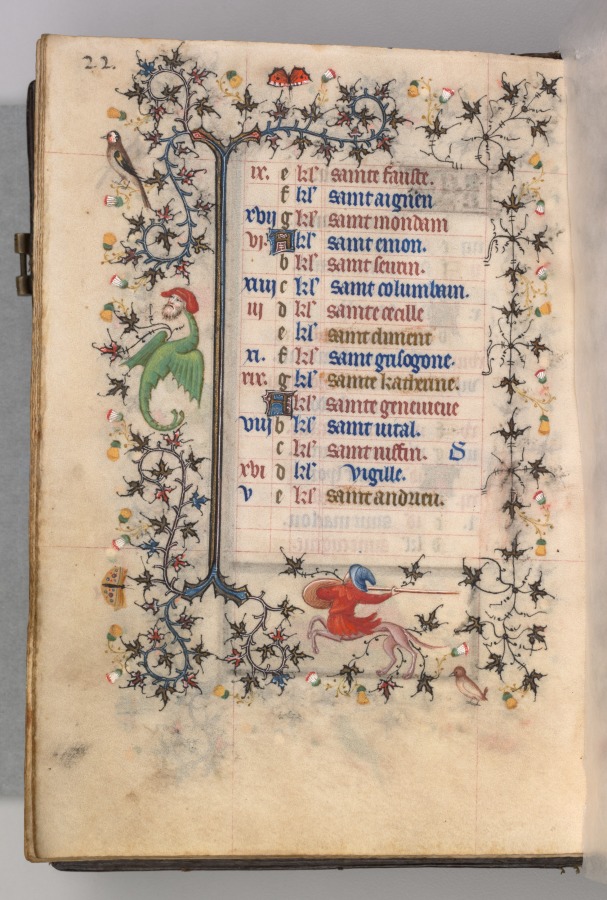 22.
ix. e kl' sainte fauste.
f kl' saint aignen
xvii g kl' saint mondain
vi. A kl' saint emon.
b kl' saint seurin.
xiiii c kl' saint columbain.
iii d kl' sainte cecille
e kl' saint climent
xi. f kl' saint grisogone.
xix. g kl' sainte katherine.
A kl' sainte genevieve
viii b kl' saint vital.
c kl' saint ruffin. S
xvi d kl' Vigille.
v e kl' saint andrieu.